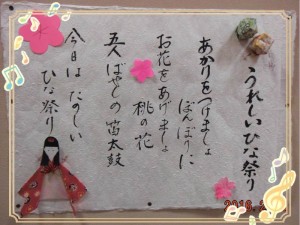 うれしいひな祭り
あかりをつけましょ
ぼんぼりに
お花をあげましょ
桃の花
五人ばやしの笛太鼓
今日はたのしい
ひな祭り